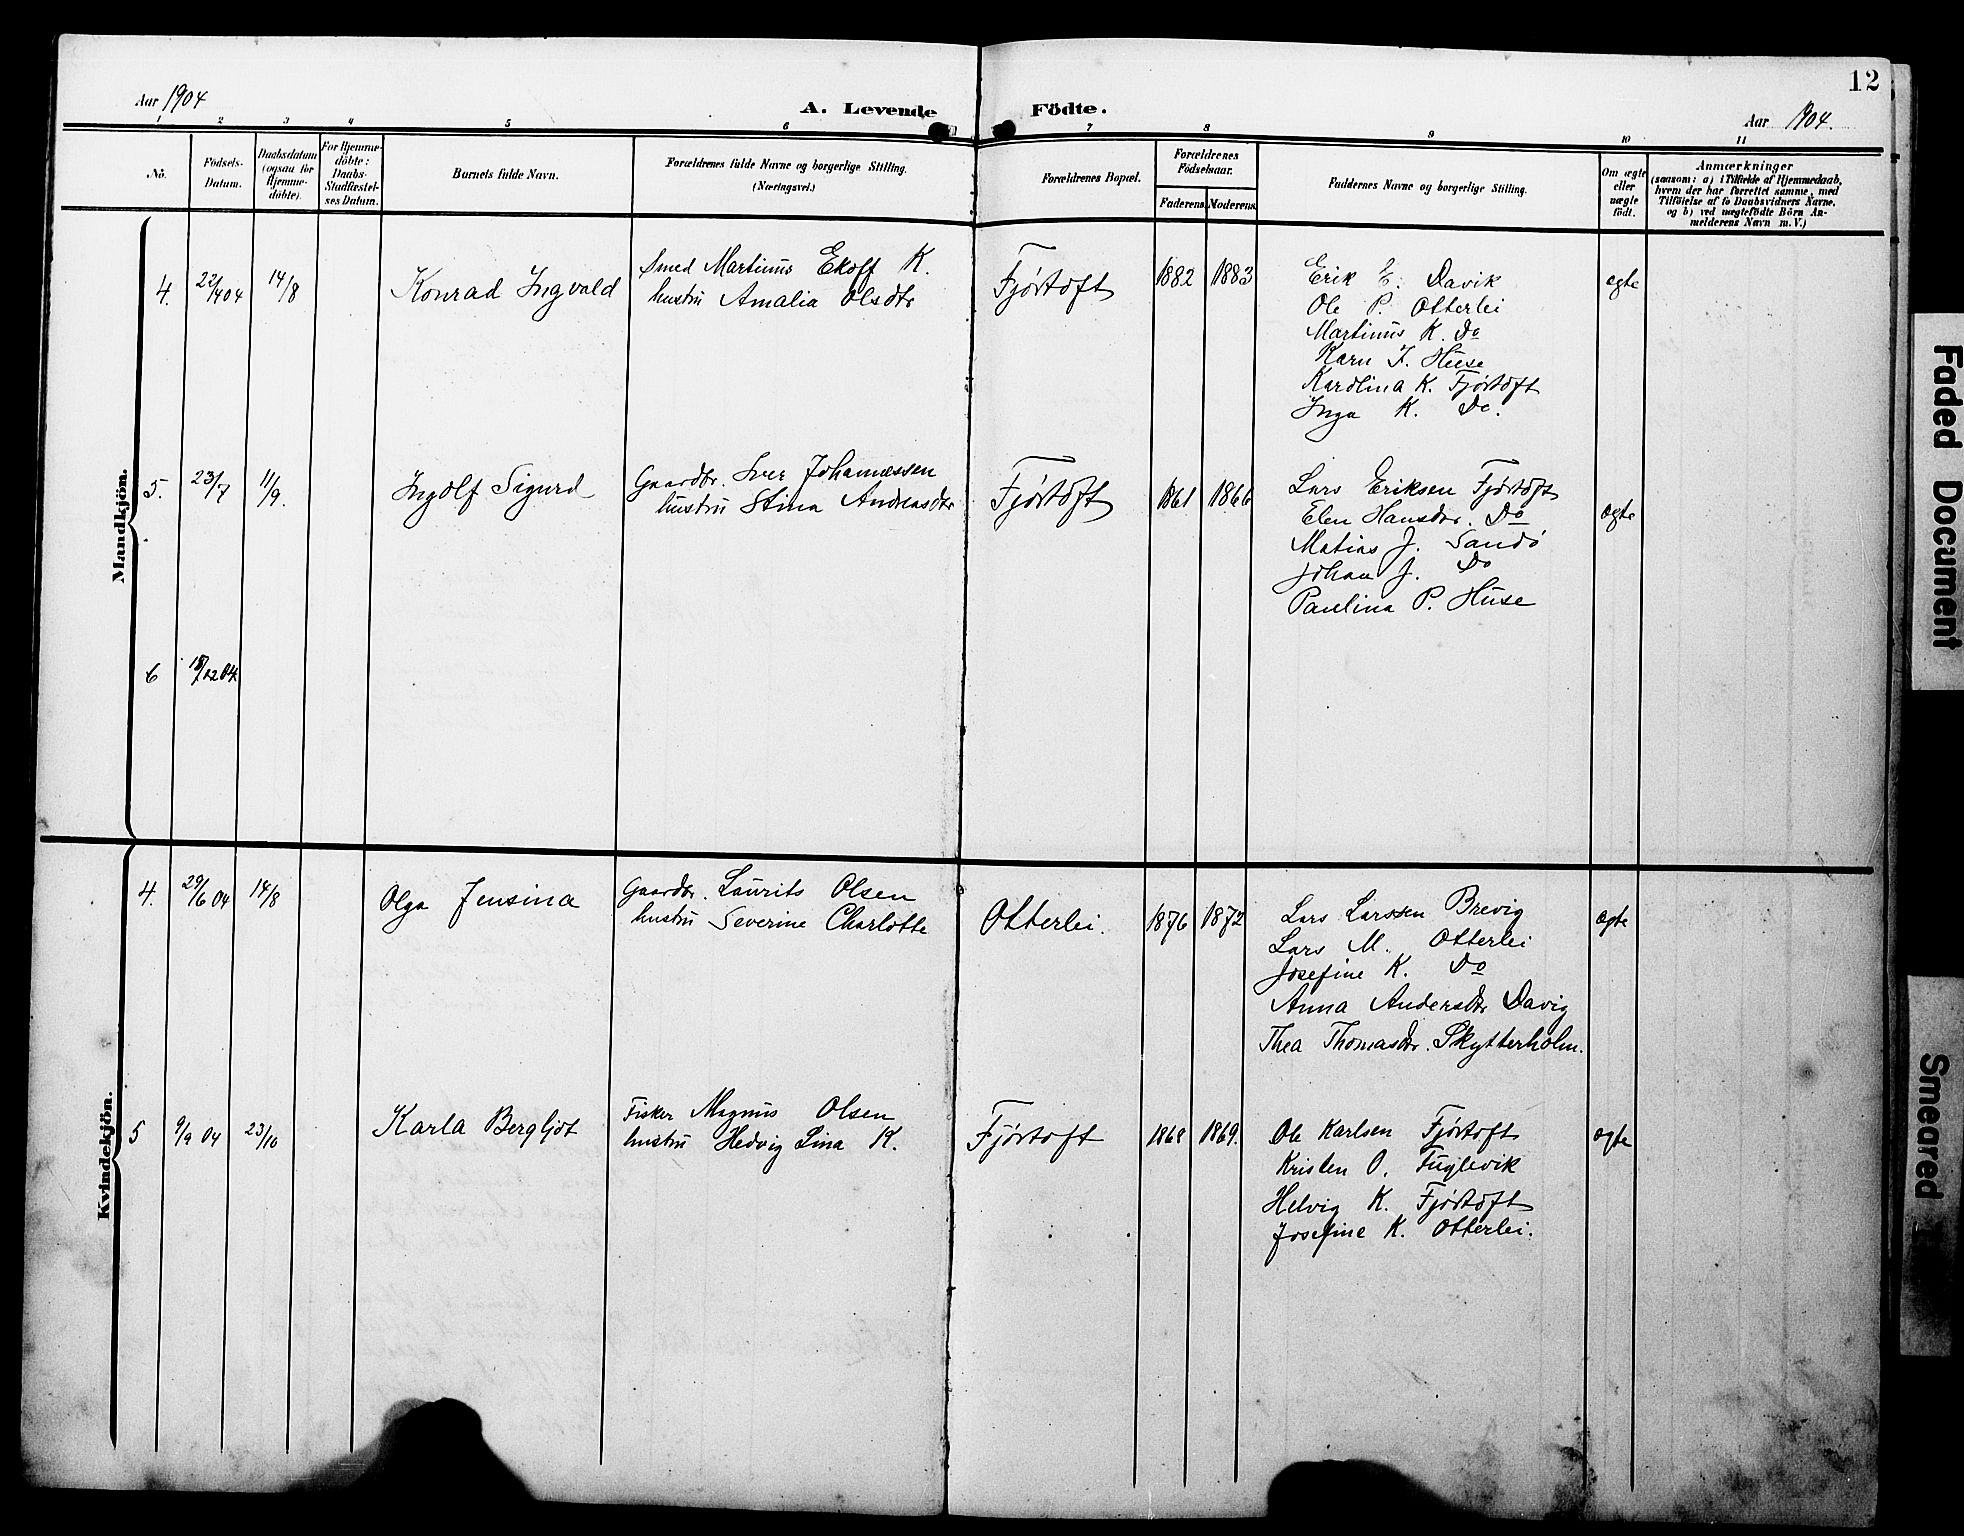 12
Aar 1904
A. Levende Födte.
Aar 1904.
1 2 3 4 5 6 7 8 9 10 11
No.
Födsels-
Datum.
Daabsdatum
(ogsaa for
Hjemme-
döbte).
For Hjemme-
döbte:
Daabs-
Stadfæstel-
ses Datum.
Barnets fulde Navn.
Forældrenes fulde Navne og borgerlige Stilling.
(Næringsvei.)
Forældrenes Bopæl.
Forældrenes
Födselsaar.
Faderens. Moderens.
Faddernes Navne og borgerlige Stilling.
Om ægte
eller
uægte
født.
Anmærkninger
(saasom: a) i Tilfælde af Hjemmedaab,
hvem der har forrettet samme, med
Tilföielse af to Daabsvidners Navne,
og b) ved uægtefödte Börn An-
melderens Navn m. V.)
Mandkjön.
4. 22/4 04 14/8 Konrad Ingvald
Smed Martinus Ekoff K.
hustru Amalia Olsdtr
Fjørtoft 1882 1883
Erik E. Davik
Ole P. Otterlei
Martinus K. Do
Karn J. Huse
Karolina K. Fjørtoft
Inga K. Do.
ægte
5. 23/7 11/9. Ingolf Sigurd
Gaardbr. Iver Johannessen
hustru Stina Andreasdtr
Fjørtoft 1861 1866
Lars Eriksen Fjørtoft
Elen Hansdtr. Do
Matias J. Sandö
Johan J. Do
Paulina P. Huse
ægte
6 /12 04
Kvindekjön.
4. 29/6 04 14/8 Olga Jensina
Gaardbr. Laurits Olsen
hustru Severine Charlotte
Otterlei. 1876 1872
Lars Larssen Brevig
Lars M. Otterlei
Josefine K. Do
Anna Andersdtr Davig
Thea Thomasdtr. Skytterholm.
ægte
5 9/9 04 23/10 Karla Bergljot
Fisker Magnus Olsen
hustru Hedvig Lina K.
Fjørtoft 1868 1869.
Ole Karlsen Fjørtoft
Kristen O. Fuglevik
Helvig K. Fjørtoft
Josefine K. Otterlei.
ægte
Faded Document
Smeared